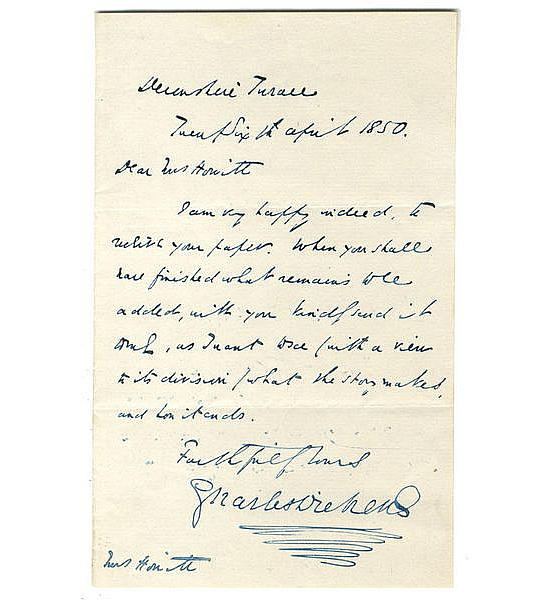 Devonshire Terrace
Twenty Sixth april 1850.
Dear Mrs Howitt
I am very happy indeed, to
receive your paper. When you shall
have finished what remains to be
added, will you kindly send it
to me, as I want to see (with a view
to its division) what the story makes,
and how it ends.
Faithfully Yours
Charles Dickens
Mrs Howitt